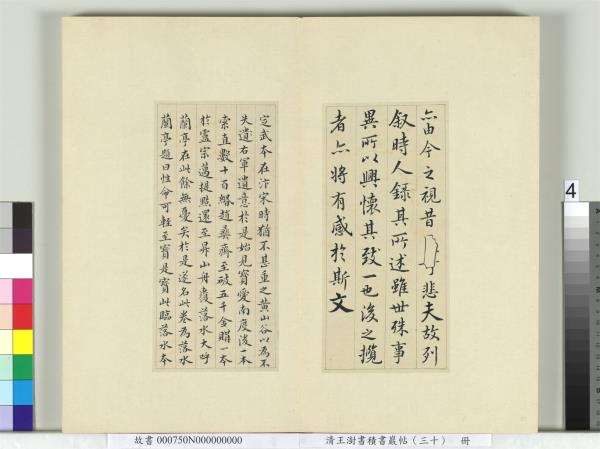 亦由今之視昔悲夫故列
敘時人錄其所述雖世殊事
異所以興懷其致一也後之攬
者亦將有感於斯文
定武本在汴宋時猶不甚重之黃山谷以為不
失遺右軍遺意於是始見寶愛南度後一本
索直數十百緡趙彝齋至破五千金購一本
於霅宗邁提點還至昇山舟覆落水大呼
蘭亭在此餘無憂矣於是遂名此卷為落水
蘭亭題曰性命可輕至寶是寶此臨落水本
4
故書 000750N000000000 清王澍書積書巖帖（三十） 冊